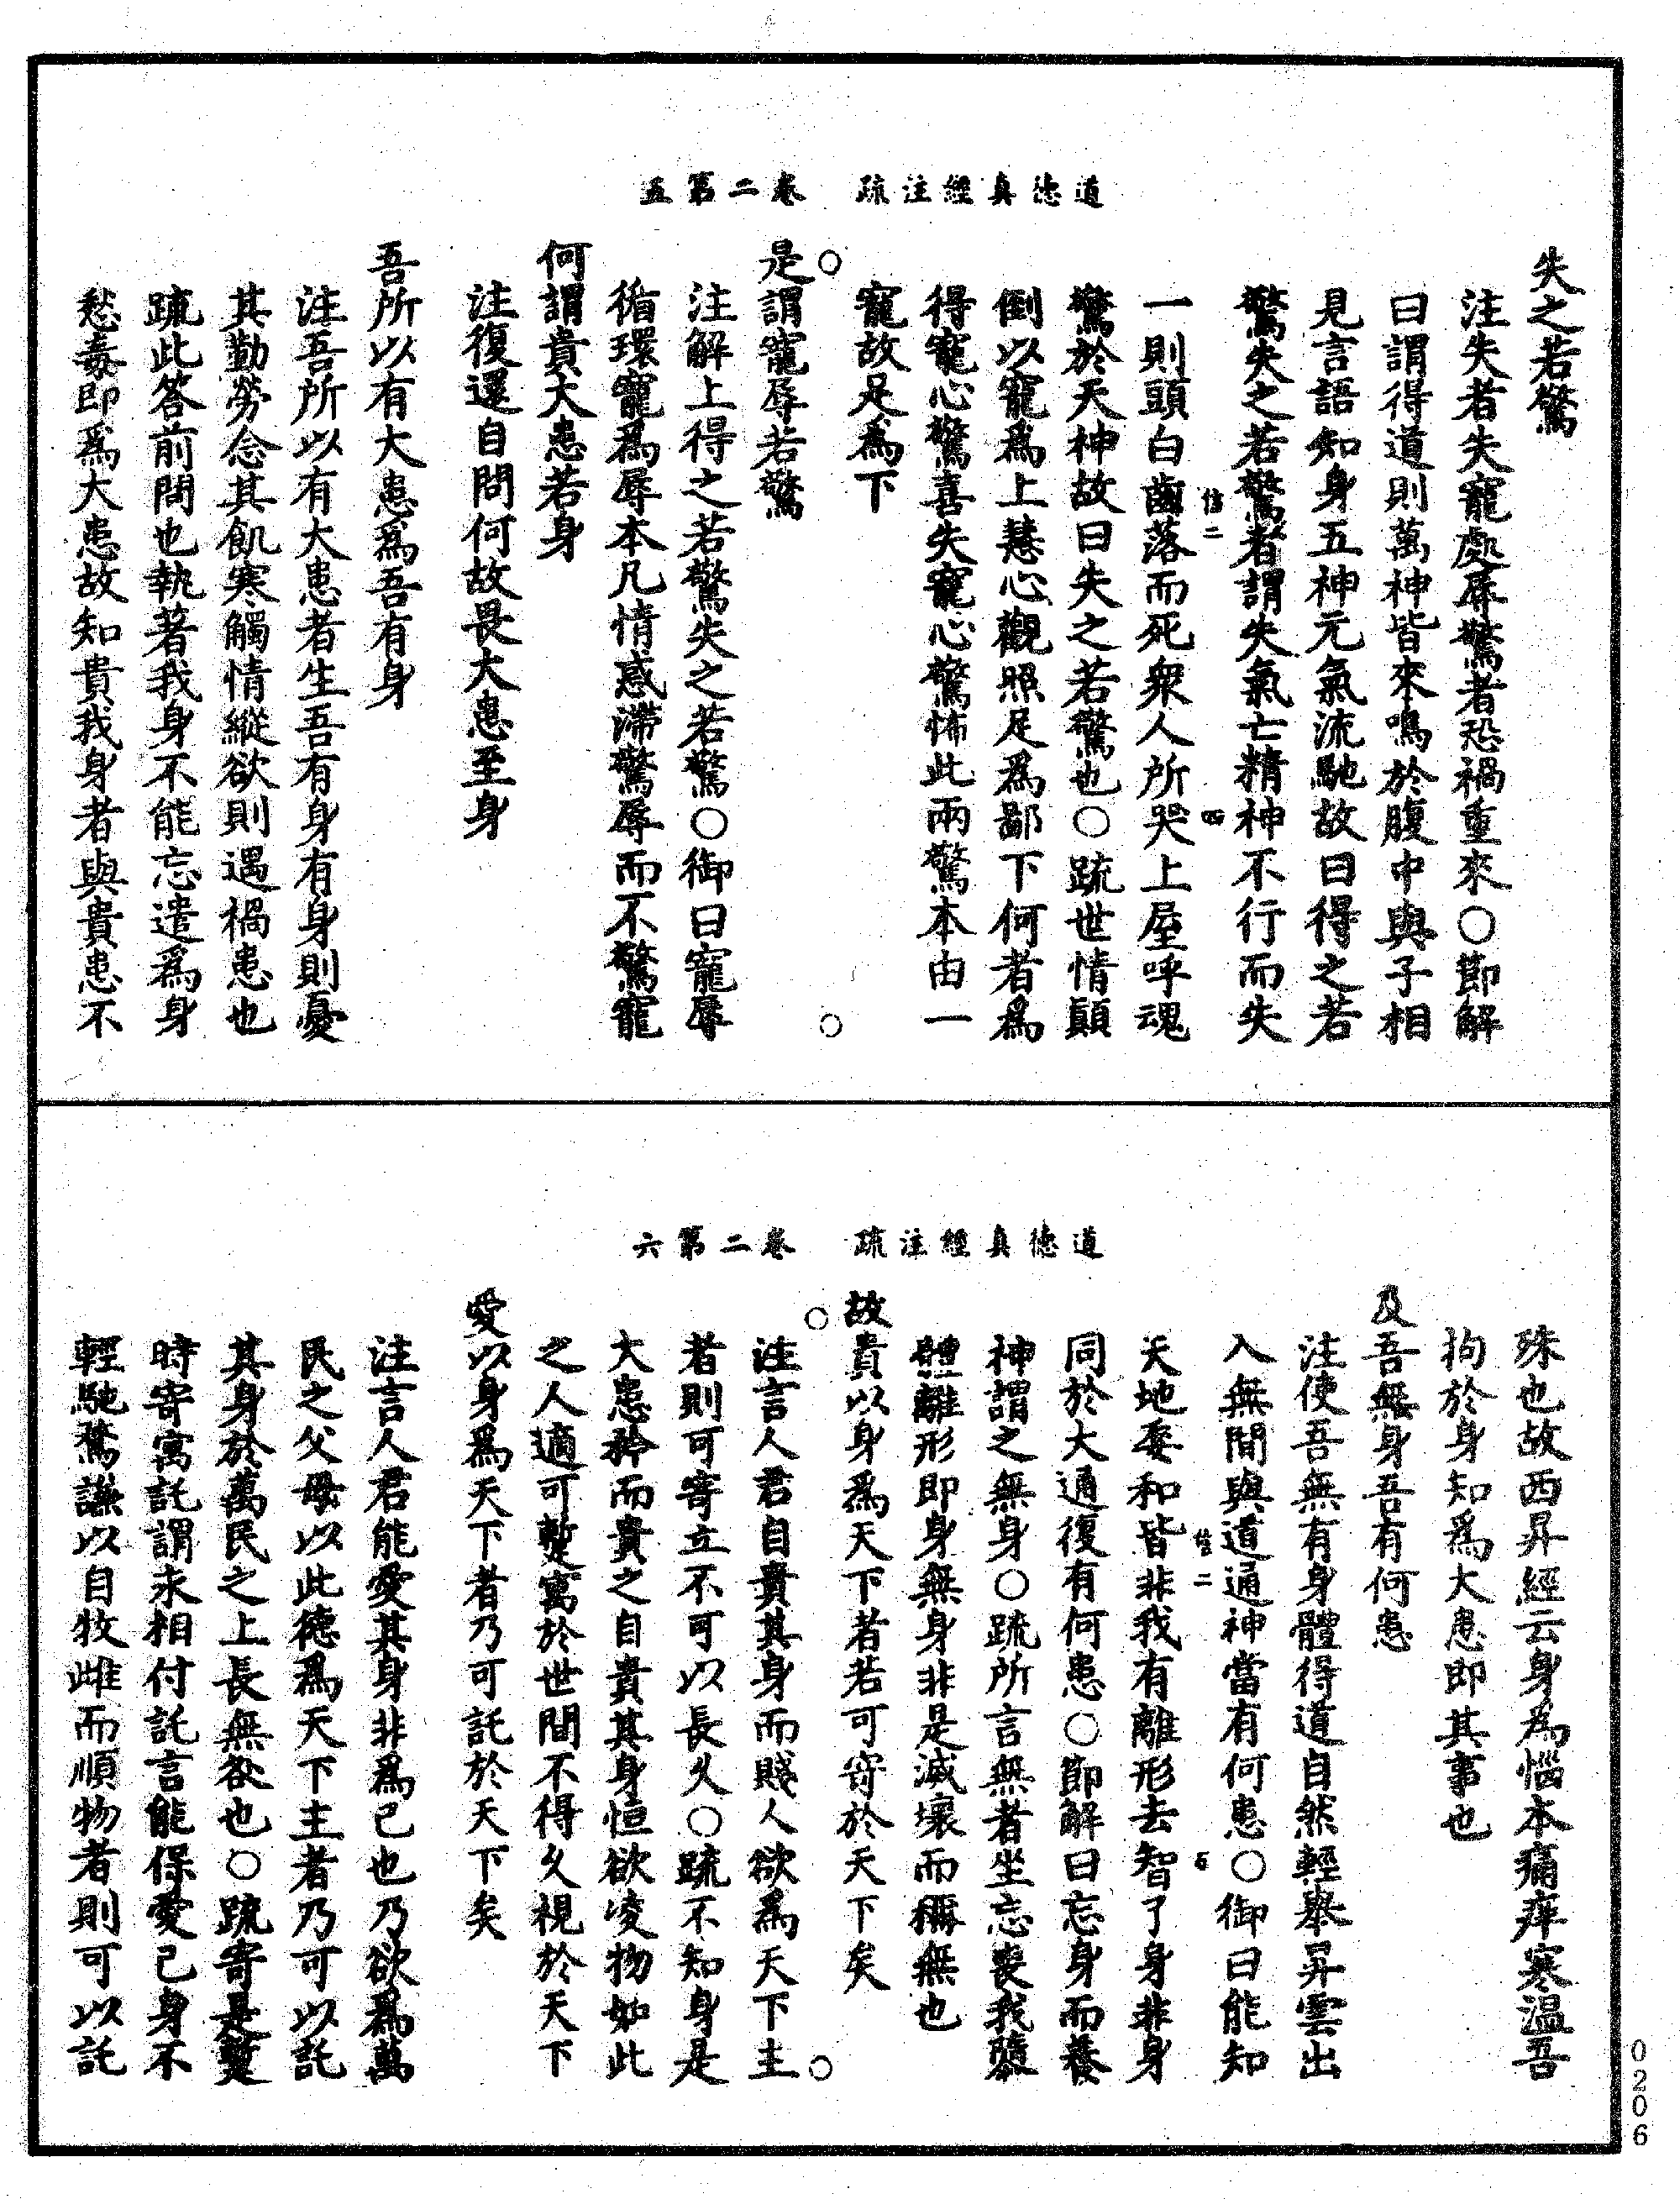 道德真經注疏　卷二第五
失之若驚
注失者失寵處辱驚者恐禍重來○節解
曰謂得道則萬神皆來鳴於腹中與子相
見言語知身五神元氣流馳故曰得之若
驚失之若驚者謂失氣亡精神不行而失
信二
四
一則頭白齒落而死衆人所哭上屋呼魂
驚於天神故曰失之若驚也○疏世情顛
倒以寵爲上慧心觀照足爲鄙下何者爲
得寵心驚喜失寵心驚怖此兩驚本由一
寵故足爲下
○
○
是謂寵辱若驚
注解上得之若驚失之若驚○御曰寵辱
循環寵爲辱本凡情惑滯驚辱而不驚寵
何謂貴大患若身
注復還自問何故畏大患至身
吾所以有大患爲吾有身
注吾所以有大患者生吾有身有身則憂
其勤勞念其飢寒觸情縱欲則遇禍患也
疏此答前問也執著我身不能忘遣爲身
愁毒即爲大患故知貴我身者與貴患不
道德真經注疏　卷二第六
殊也故西昇經云身為惱本痛痒寒温吾
拘於身知爲大患即其事也
及吾無身吾有何患
注使吾無有身體得道自然輕舉昇雲出
入無間與道通神當有何患○御曰能知
信二
五
天地委和皆非我有離形去智了身非身
同於大通復有何患○節解曰忘身而養
神謂之無身○疏所言無者坐忘喪我隳
體離形即身無身非是滅壞而稱無也
故貴以身爲天下者若可寄於天下矣
○
○
注言人君自貴其身而賤人欲爲天下主
者則可寄立不可以長久○疏不知身是
大患矜而貴之自貴其身恒欲凌物如此
之人適可蹔寓於世間不得久視於天下
愛以身爲天下者乃可託於天下矣
注言人君能愛其身非爲己也乃欲爲萬
民之父母以此德爲天下主者乃可以託
其身於萬民之上長無欲也○疏寄是蹔
時寄寓託謂永相付託言能保愛己身不
輕馳騖謙以自牧雌而順物者則可以託
0206